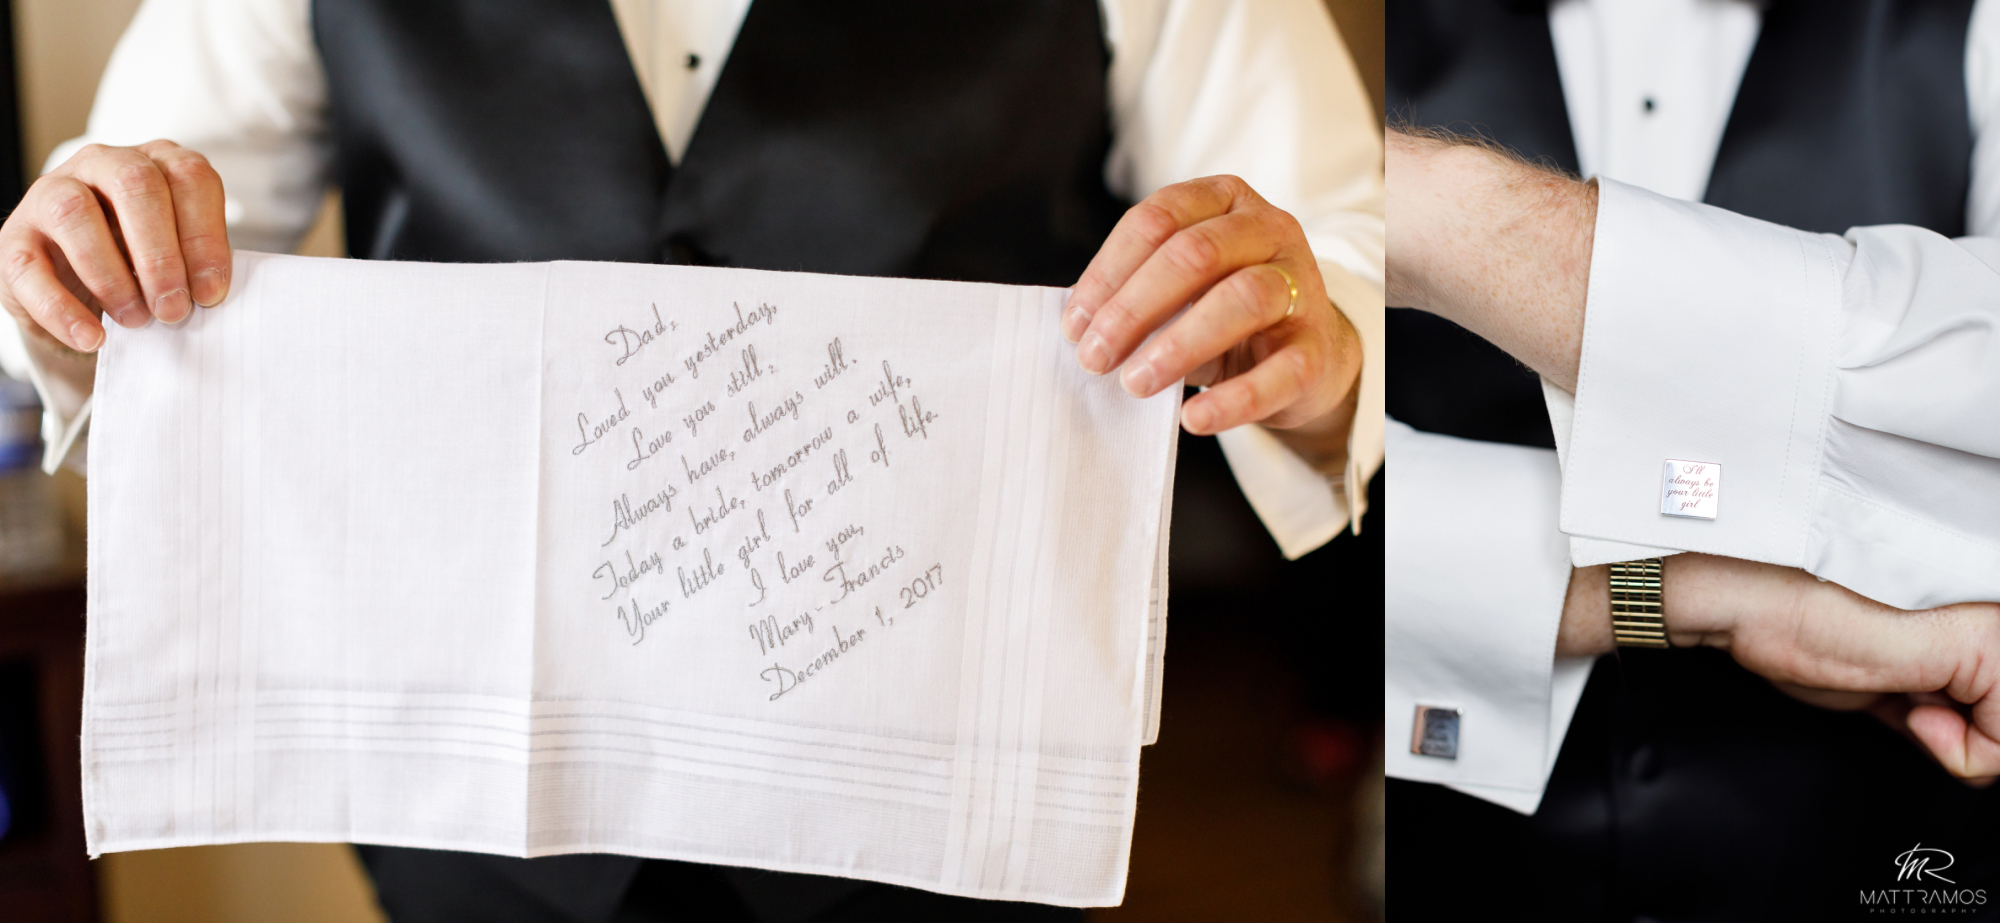 Dad,
Loved you yesterday,
Love you still,
Always have, always will.
Today a bride, tomorrow a wife,
Your little girl for all of life.
I love you,
Mary-Francis
December 1, 2017
I'll
always be
your little
girl
MR
MATT RAMOS
PHOTOGRAPHY